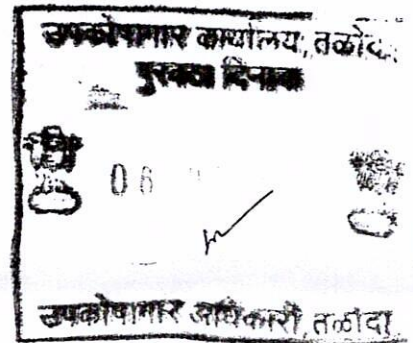 उपकोषागार कार्यालय, तळोदा
पुरवठा दिनांक
06
उपकोषागार अधिकारी, तळोदा